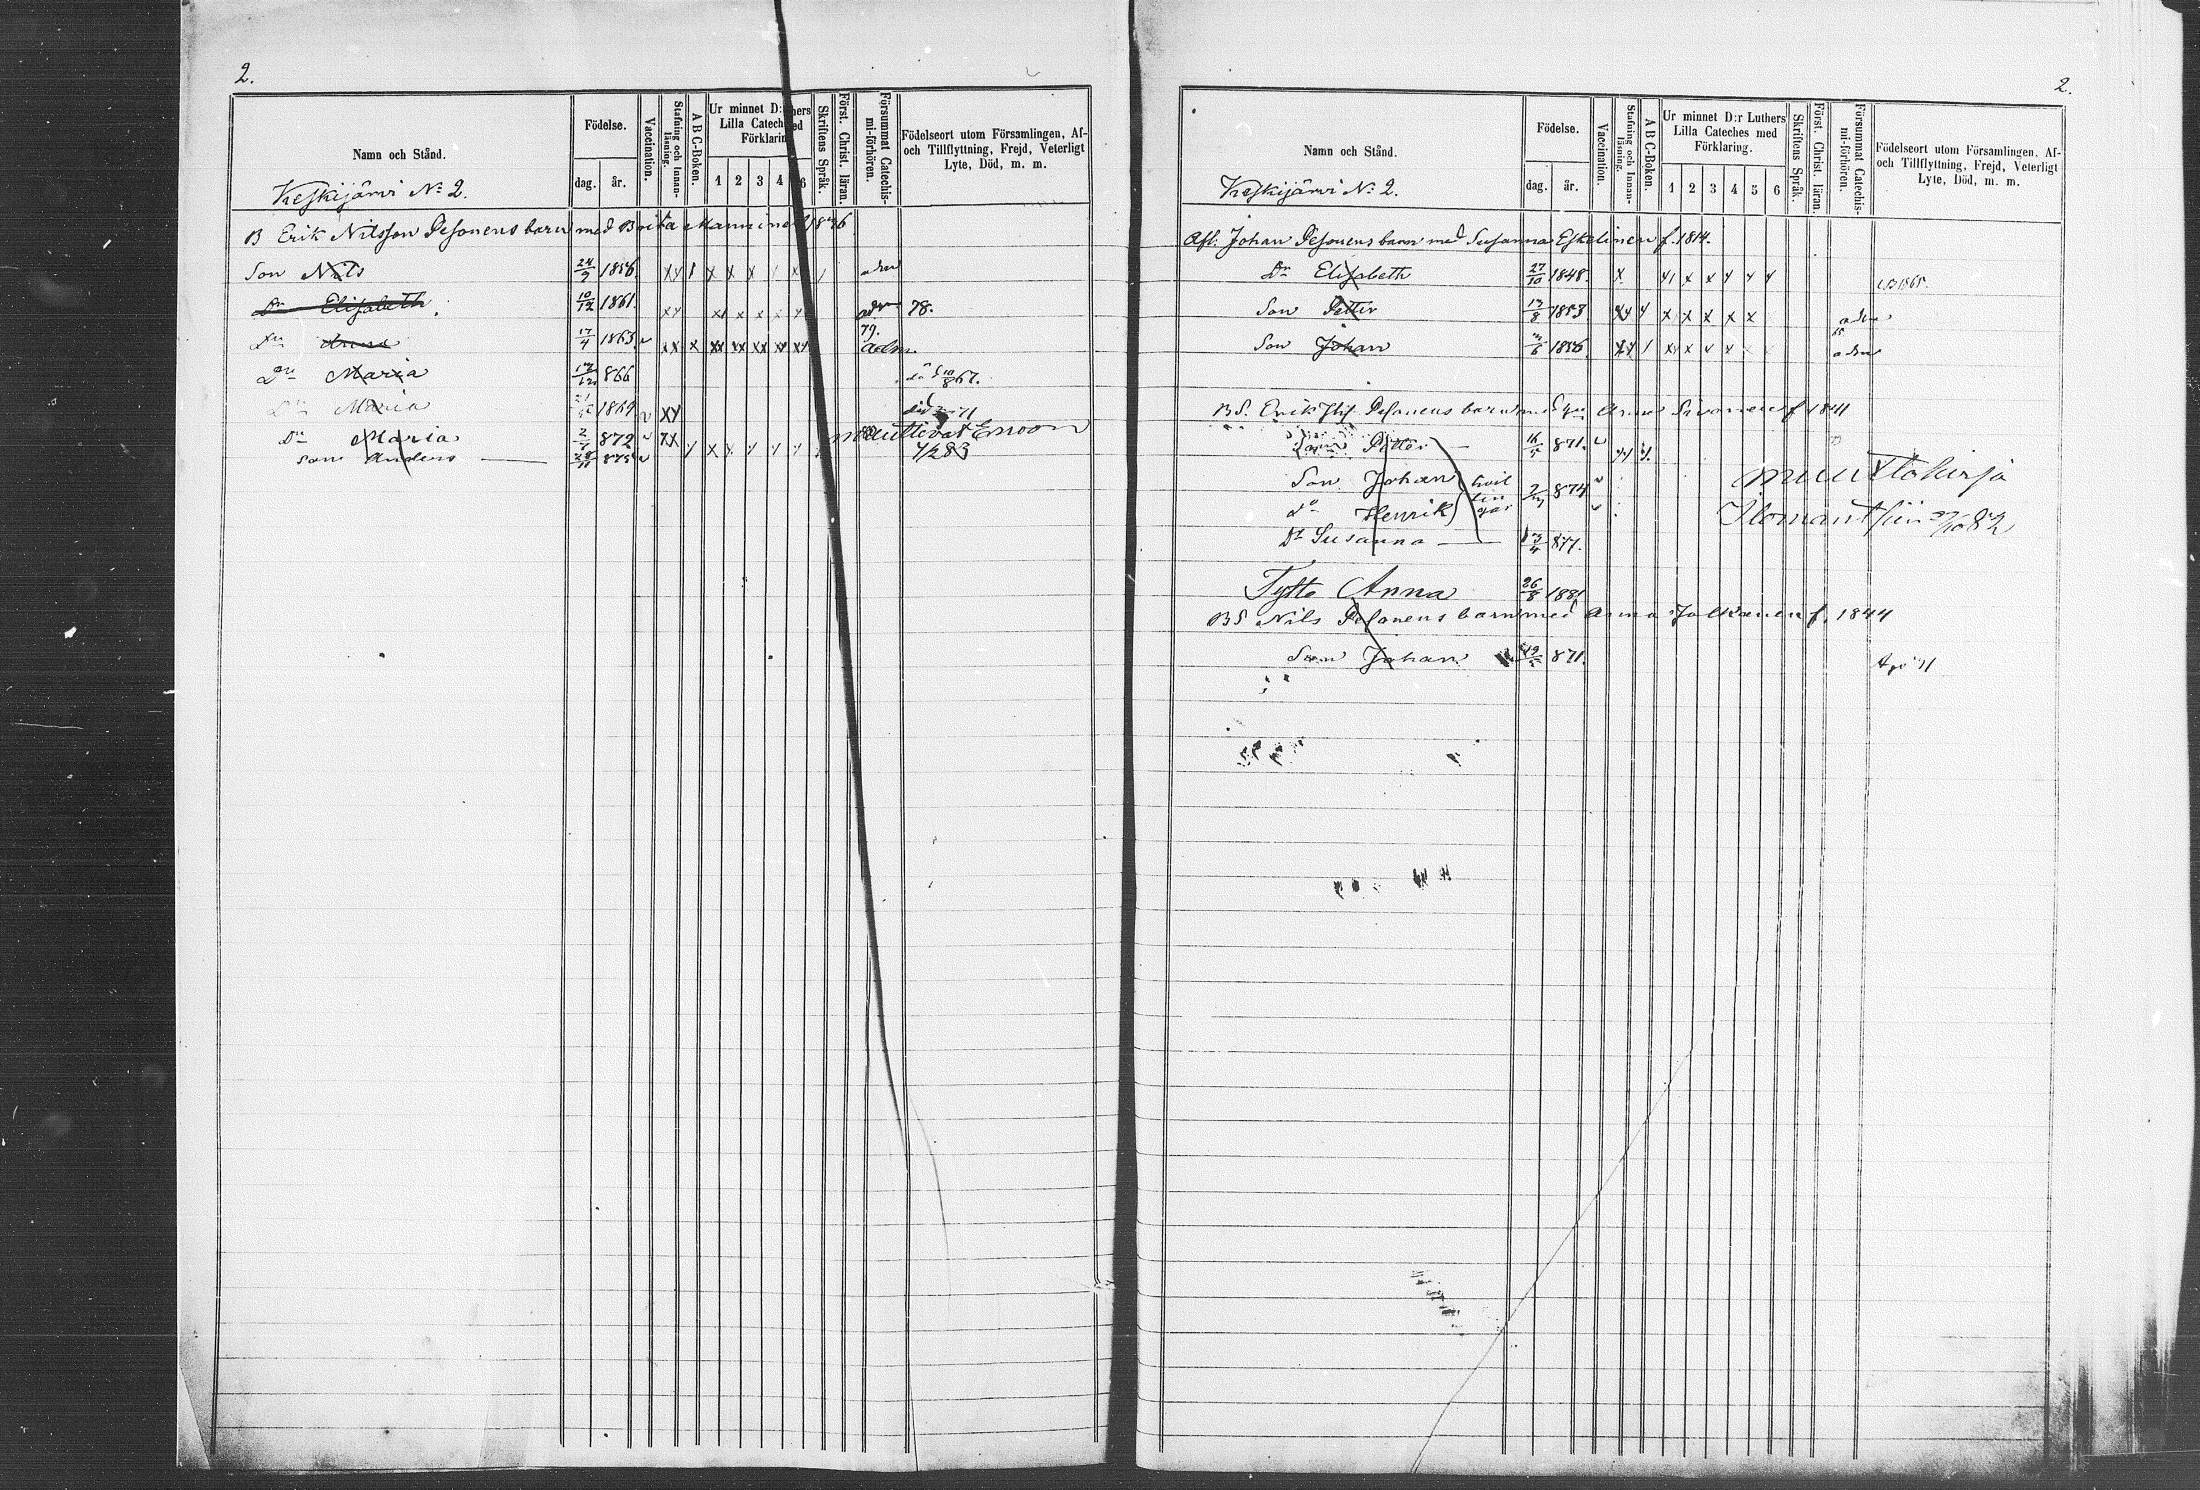 2.
Namn och Stånd.
Födelse.
dag.
år.
Vaccination.
Stafning och Innan-läsning.
A B C-Boken.
Ur minnet D:r Luthers
Lilla Cateches med
Förklaring.
1 2 3 4 6
Skriftens Språk.
Först. Christ. läran.
Försummat Catechis-mi-förhören.
Födelseort utom Församlingen, Af-
och Tillflyttning, Frejd, Veterligt
Lyte, Död, m. m.
Keskijärvi No 2.
B Erik Nilsson Pesonens barn med Brita Manninen
Son Nils 24/9 1856 adm
Dr Elisabeth 10/12 1861. adm 78.
Dr Anna 17/4 1863. 79. adm.
Dr Maria 866 10/8 67.
Dr Maria 1869
Dr Maria 872 muuttivat Enoon
son Anders 875 83
2.
Namn och Stånd.
Födelse.
dag.
år.
Vaccination.
Stafning och Innan-läsning.
A B C-Boken.
Ur minnet D:r Luthers
Lilla Cateches med
Förklaring.
1 2 3 4 5 6
Skriftens Språk.
Först. Christ. läran.
Försummat Catechis-mi-förhören.
Födelseort utom Församlingen, Af-
och Tillflyttning, Frejd, Veterligt
Lyte, Död, m. m.
Keskijärvi No 2.
Afl. Johan Pesonens barn med Susanna Eskelinen f. 1814.
Dr Elisabeth 27/10 1848. 1865.
Son Petter 13/8 1853 adm
Son Johan 1856 adm
BS. Erik Pesonens barn med Anna Sivonen f 1841
Son Petter 16/5 871.
Son Johan 874 muuttokirja
Henrik Ilomantsiin 82
Dr Susanna 877.
Tytto Anna 26/8 1881
BS Nils Pesonens barn med Anna Jolkanen f. 1844
Son Johan 871.